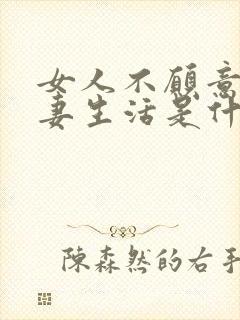 女人不愿意
妻生活是什
陳森然的右手